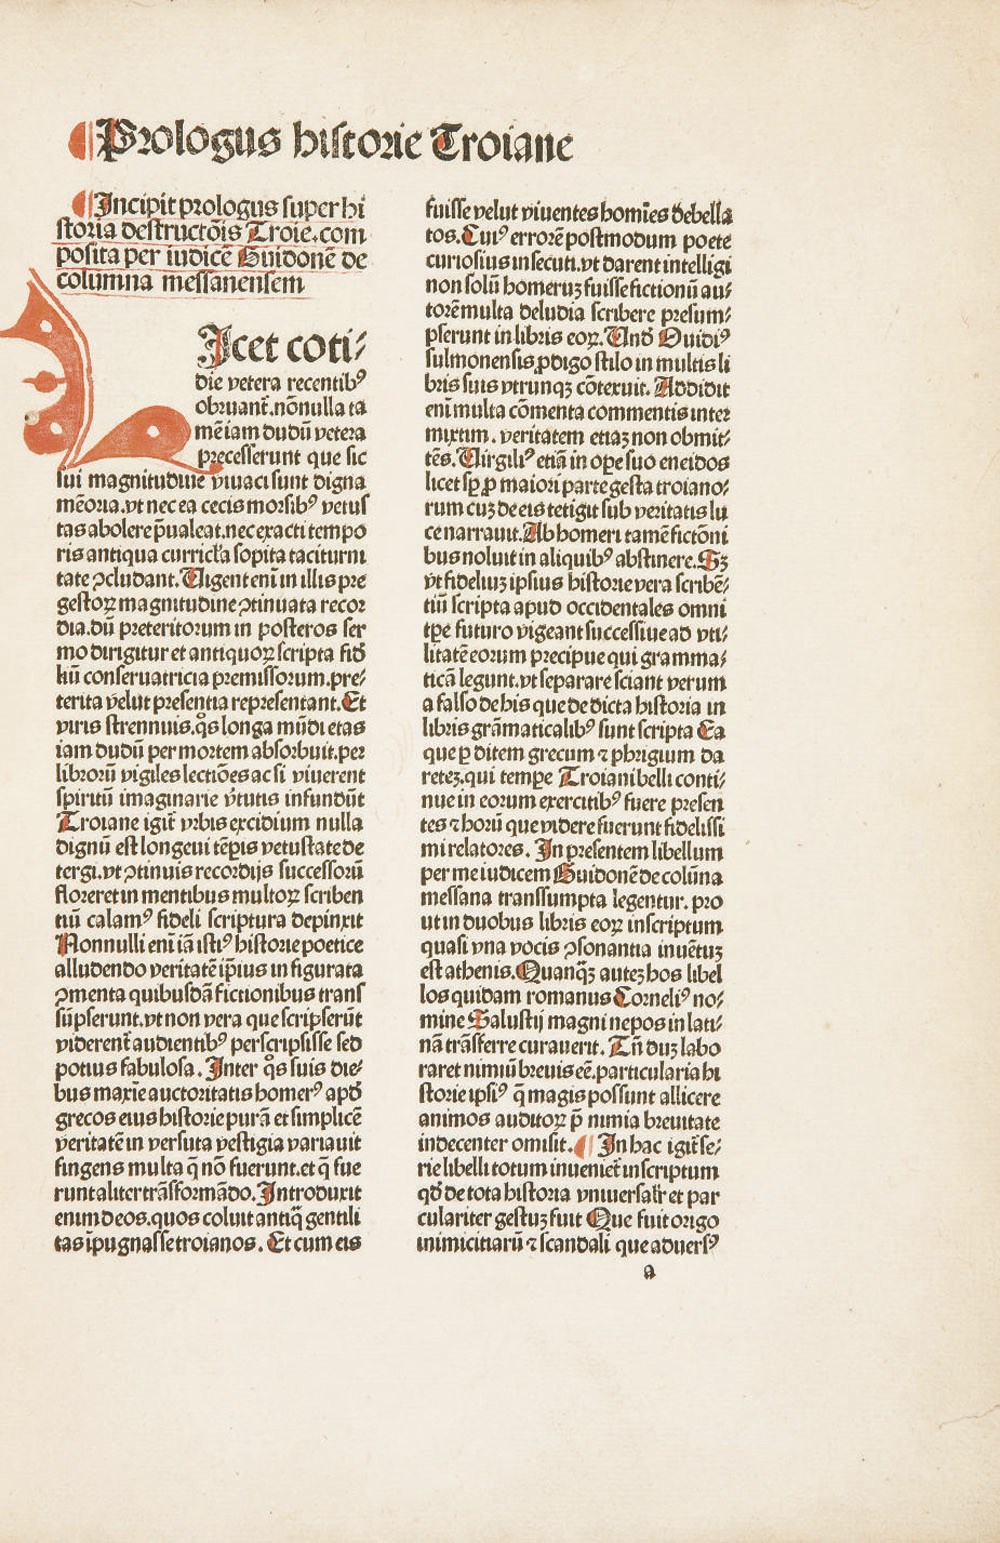 Prologus historie Troiane
Incipit prologus super hi
storia destructōis Troie.com
posita per iudicē Guidonē de
columna messanensem
LIcet coti⸗
die vetera recentibꝰ
obruant̄.nōnulla tā
mē iam dudū vetera
precesserunt que sic
sui magnitudine viuaci sunt digna
mēoria.vt nec ea cecis morsibꝰ vetus
tas abolere p̄ualeat.nec exacti tempo
ris antiqua curricl̄a sopita taciturni
tate ꝯcludant.Uigent enī in illis pre
gestoꝝ magnitudine ꝯtinuata recor
dia.dū preteritorum in posteros ser
mo dirigitur et antiquoꝝ scripta fid̄
liū conseruatricia premissorum.pre⸗
terita velut presentia representant.Et
viris strennuis.qͦs longa mūdi etas
iam dudū per mortem absorbuit.per
librorū vigiles lectiōes ac si viuerent
spiritū imaginarie v̄tutis infundūt
Troiane igit̄ vrbis excidium nulla
dignū est longeui tēpis vetustate de
tergi.vt ꝯtinuis recordijs successorū
floreret in mentibus multoꝝ scriben
tiū calamꝰ fideli scriptura depinxit
Nonnulli enī iā istiꝰ historie poetice
alludendo veritatē ip̄ius in figurata
ꝯmenta quibusdā fictionibus trans
sūpserunt.vt non vera que scripserūt
viderent̄ audientibꝰ perscripsisse sed
potius fabulosa. Inter qͦs suis die⸗
bus maxīe auctoritatis homerꝰ apd̄
grecos eius historie purā et simplicē
veritatē in versuta vestigia variauit
fingens multa q̄ nō fuerunt.et q̄ fue
runt aliter trāsformādo. Introduxit
enim deos.quos coluit antiq̄ gentili
tas īpugnasse troianos. Et cum eis
fuisse velut viuentes homīes debella
tos.Cuiꝰ errorē postmodum poete
curiosius insecuti.vt darent intelligi
non solū homeruꝫ fuisse fictionū au⸗
torē multa deludia scribere presum⸗
pserunt in libris eoꝝ. Und̄ Ouidiꝰ
sulmonensis ꝓdigo stilo in multis li
bris suis vtrunqꝫ cōtexuit. Addidit
enī multa cōmenta commentis inter
mixtim. veritatem etiaꝫ non obmit⸗
tēs.Uirgiliꝰ etiā in oꝑe suo eneidos
licet sꝑ ꝓ maiori parte gesta troiano⸗
rum cuꝫ de eis tetigit sub veritatis lu
ce narrauit.Ab homeri tamē fictōni
bus noluit in aliquibꝰ abstinere.Sꝫ
vt fideliuꝫ ipsius historie vera scribē⸗
tiū scripta apud occidentales omni
tꝑe futuro vigeant successiue ad vti⸗
litatē eorum precipue qui gramma⸗
ticā legunt.vt separare sciant verum
a falso de his que de dicta historia in
libris grāmaticalibꝰ sunt scripta Ea
que ꝑ ditem grecum ⁊ phrigium da
reteꝫ.qui tempe Troiani belli conti⸗
nue in eorum exercitibꝰ fuere presen
tes ⁊ horū que videre fuerunt fidelissi
mi relatores. In presentem libellum
per me iudicem Guidonē de colūna
messana transsumpta legentur. pro
ut in duobus libris eoꝝ inscriptum
quasi vna vocis ꝯsonantia inuētuꝫ
est athenis.Quanq̄ꝫ auteꝫ hos libel
los quidam romanus Corneliꝰ no⸗
mine Salustij magni nepos in lati⸗
nā trāsferre curauerit. Tn̄ duꝫ labo
raret nimiū breuis eē.particularia hi
storie ipsiꝰ q̄ magis possunt allicere
animos auditoꝝ p̄ nimia breuitate
indecenter omisit. In hac igit̄ se⸗
rie libelli totum inueniet̄ inscriptum
qd̄ de tota historia vniuersalr̄ et par
culariter gestuꝫ fuit Que fuit origo
inimicitiarū ⁊ scandali que aduersꝰ
a